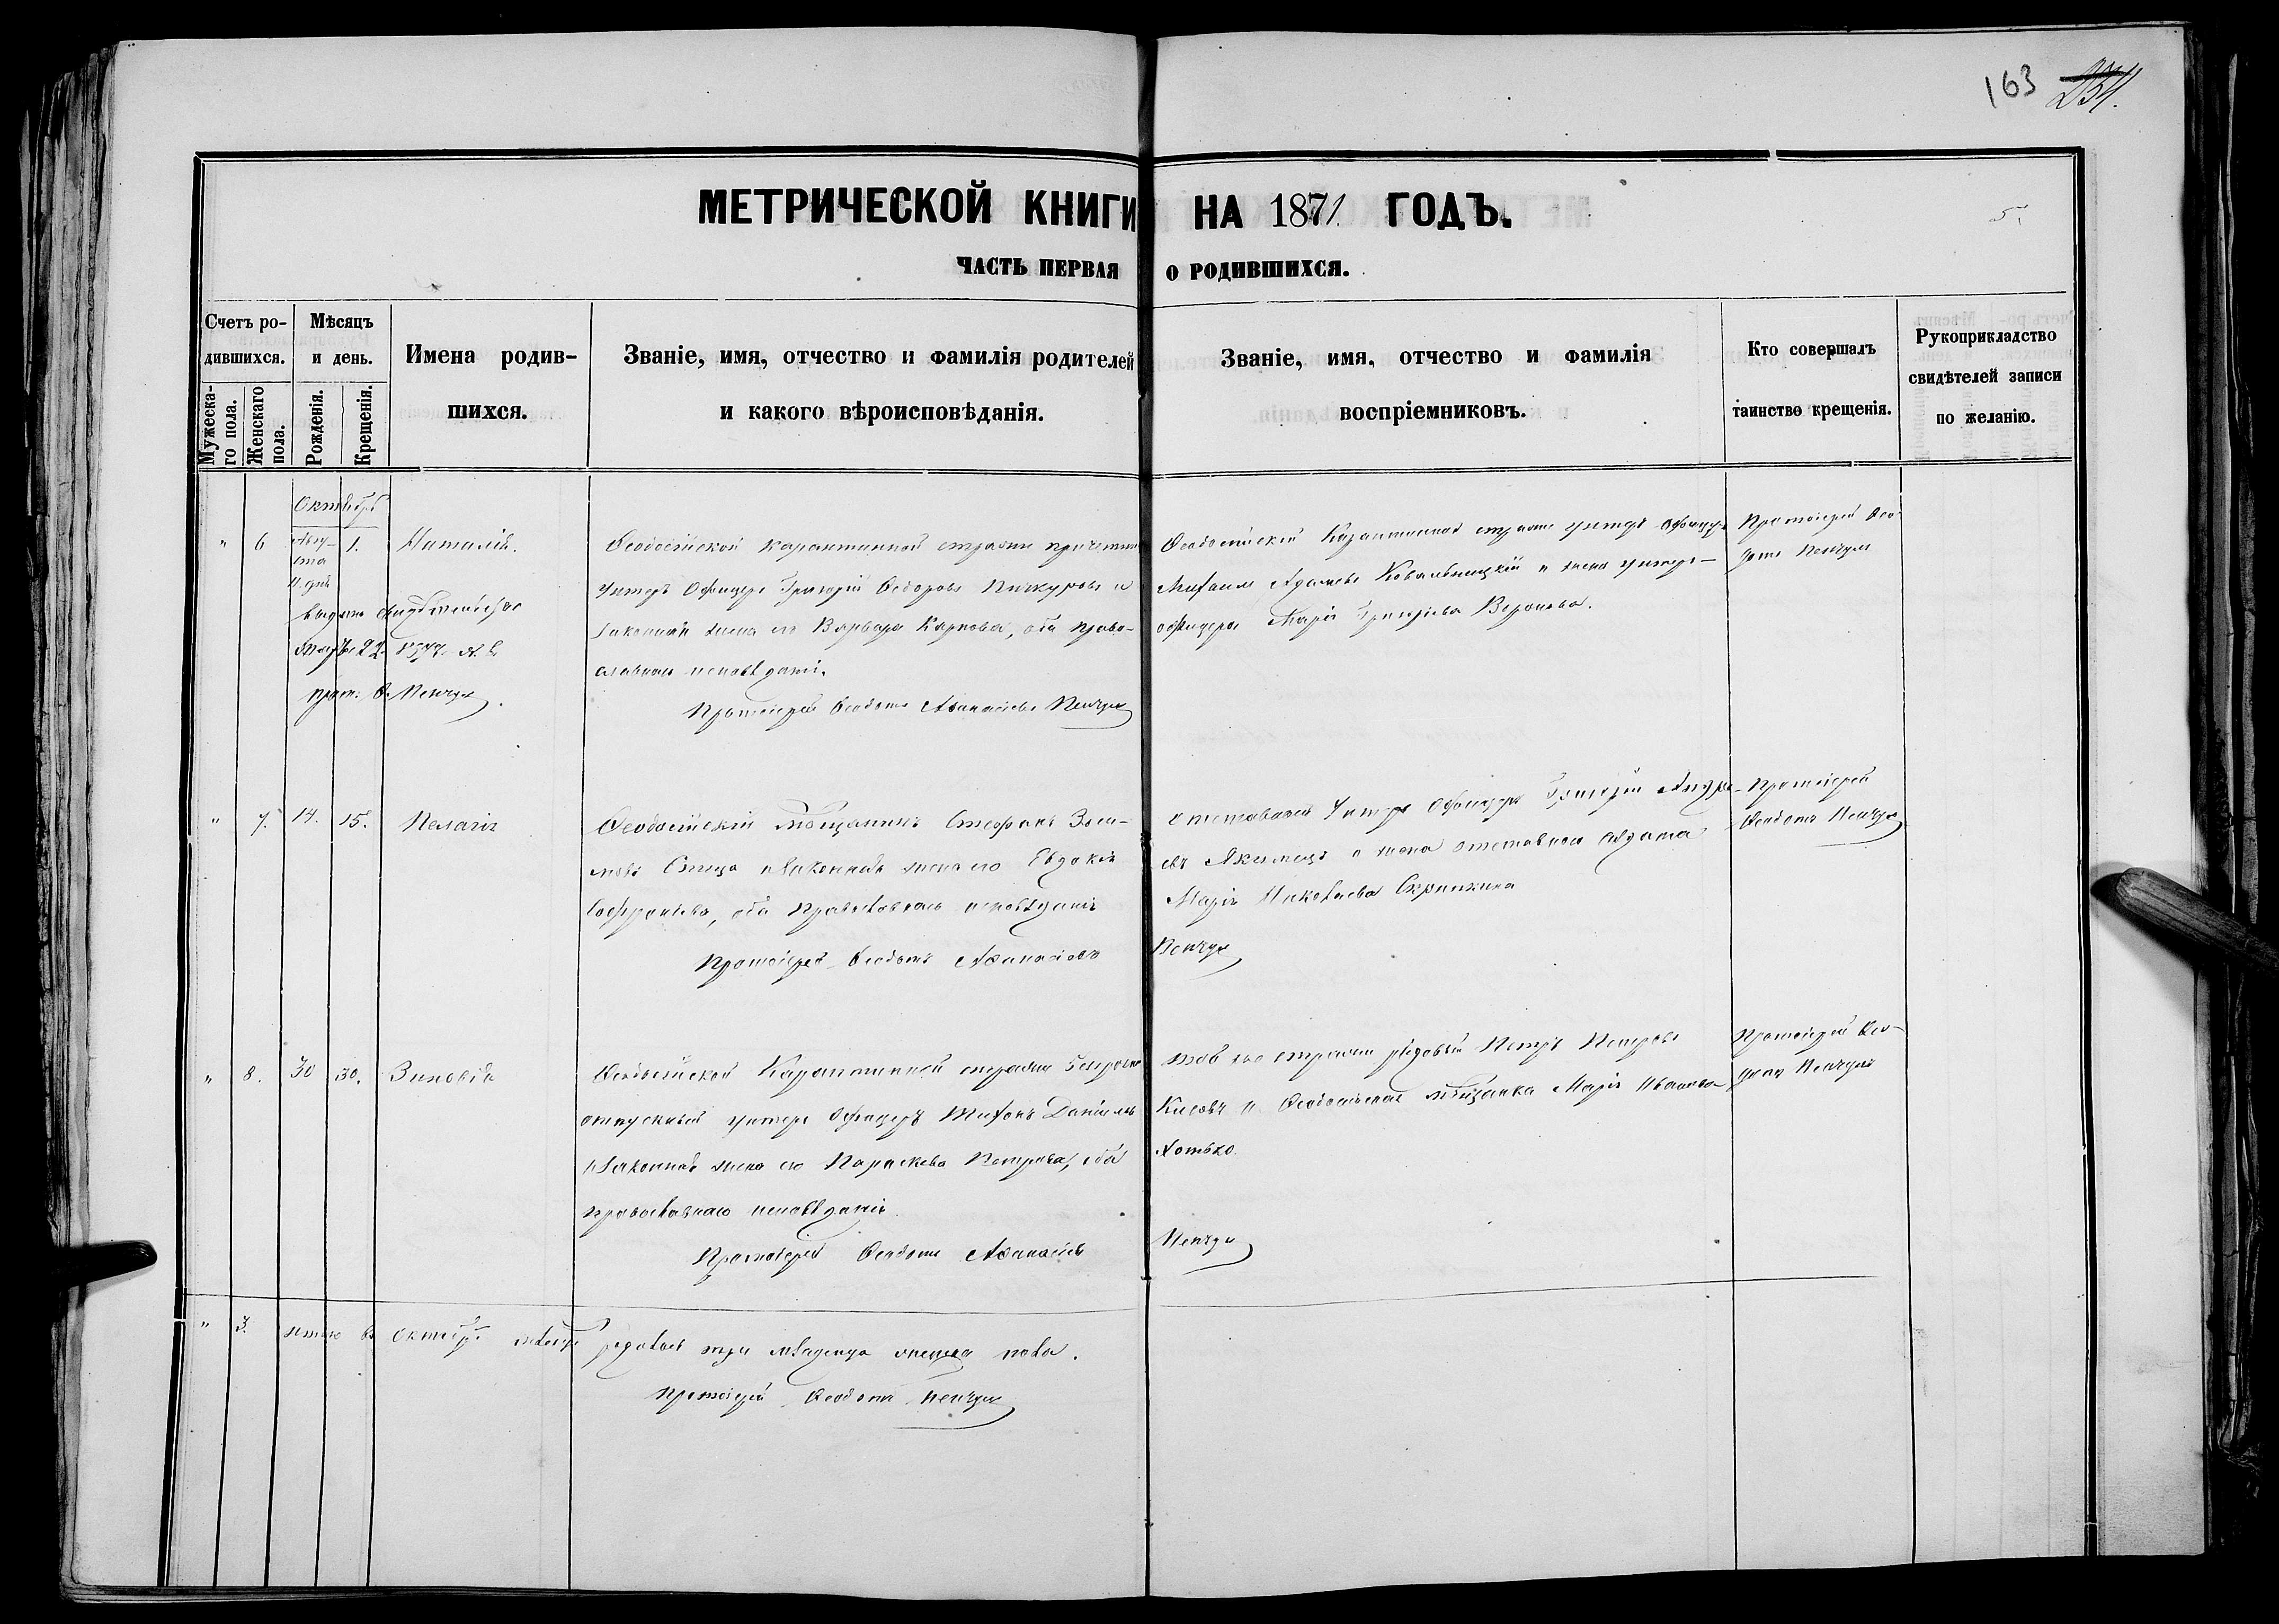 163 234.
МЕТРИЧЕСКОЙ КНИГИ НА 1871. ГОДЪ.
5.
ЧАСТЬ ПЕРВАЯ О РОДИВШИХСЯ.
Счетъ ро-
дившихся.
Мужеска-
го пола.
Женскаго
пола.
Мѣсяцъ
и день.
Рожденія.
Крещенія.
Имена родив-
шихся.
Званіе, имя, отчество и фамилія родителей
и какого вѣроисповѣданія.
Званіе, имя, отчество и фамилія
воспріемниковъ.
Кто совершалъ
таинство крещенія.
Рукоприкладство
свидѣтелей записи
по желанію.
Октябрь
" 6 Авгу-
ста
1. Наталія.
Ѳеодосійской карантинной стражи
Унтеръ Офицеръ Григорій Ѳедоровъ и
законная жена его Варвара Карпова, оба право-
славнаго исповѣданія.
Протоіерей Ѳеодотъ Аѳанасіевъ Пенчул
Ѳеодосійской Карантинной стражи унтеръ Офицеръ
Михаилъ Адамовъ Ковальницкій и жена унтеръ-
офицера Марія Григорьева
Протоіерей Ѳео-
дотъ Пенчул
выдано свидѣтельство
22 1877
прот. Ѳ. Пенчул.
" 7. 14. 15. Пелагія
Ѳеодосійскій мѣщанинъ Стефанъ
и законная жена его Евдокія
Софроніева, оба Православнаго исповѣданія
Протоіерей Ѳеодотъ Аѳанасіевъ Пенчул
отставной Унтеръ Офицеръ Григорій Андре-
евъ и жена отставнаго солдата
Марія Николаева Скрипкина
Протоіерей
Ѳеодотъ Пенчул
" 8. 30 30. Зиновія
Ѳеодосійской Карантинной стражи безсрочно
отпускной унтеръ Офицеръ Тихонъ
и законная жена его Параскева Петрова, оба
православнаго исповѣданія.
Протоіерей Ѳеодотъ Аѳанасіевъ Пенчул
той же стражи рядовый Петръ Петровъ
и Ѳеодосійская мѣщанка Марія Иванова
Хотько.
Протоіерей Ѳео-
дотъ Пенчул
" 3. Итого въ Октябрѣ мѣсяцѣ родилось три младенца женска пола.
Протоіерей Ѳеодотъ Пенчул